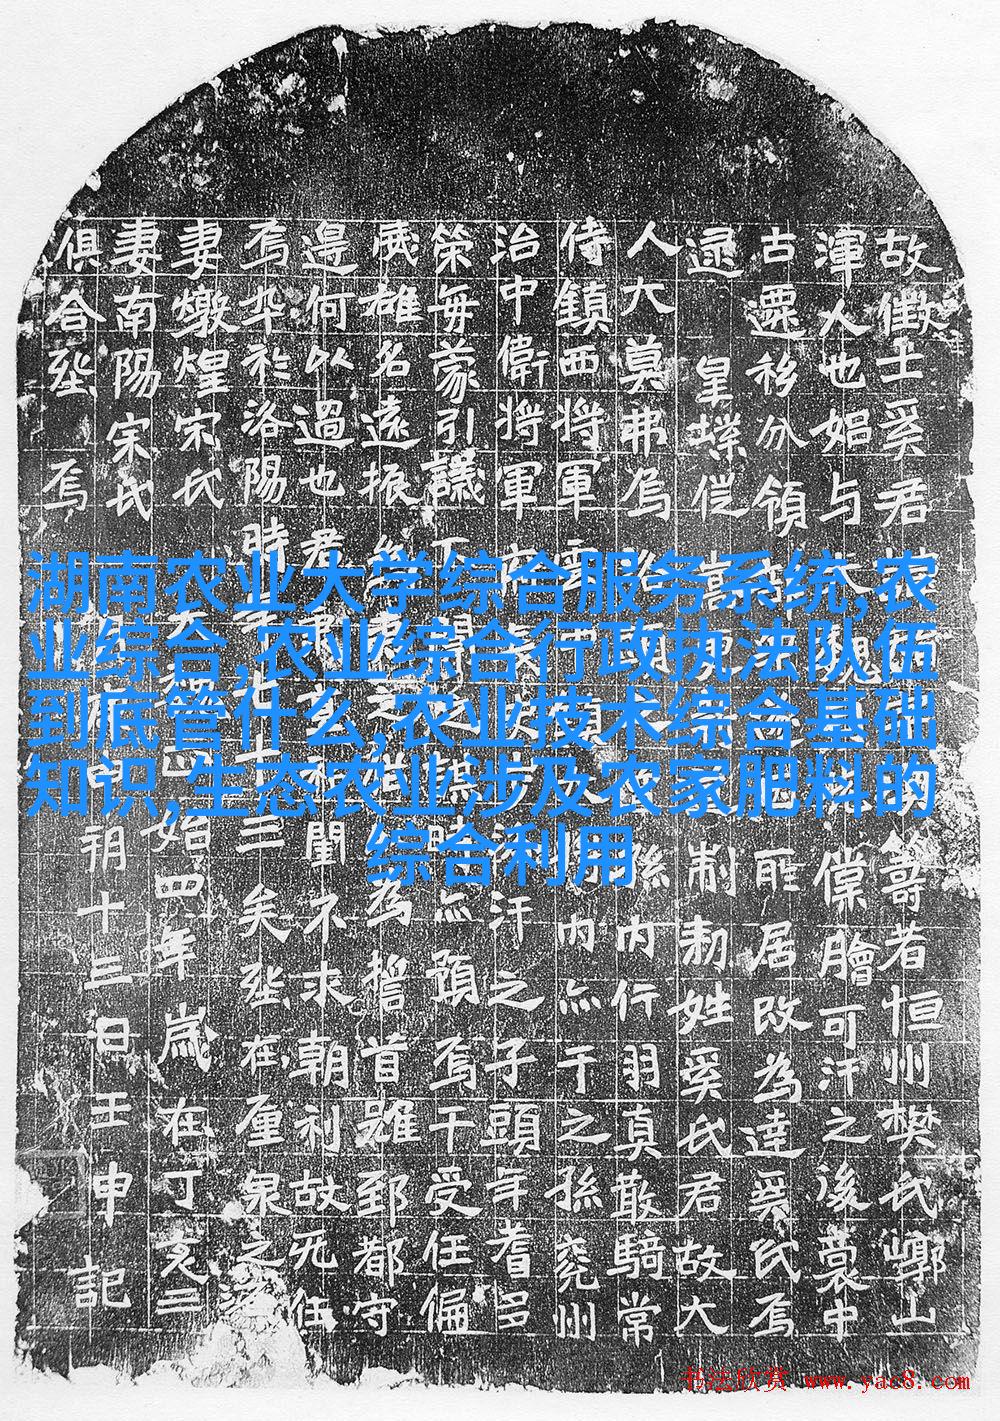 故徵士奚君 籌者恒州樊氏崞山
渾人也始与 大魏 僕膾可汗之後裔中
古遷移分領 所居改為達奚氏焉
逮 皇業徙嵩 制勅姓奚氏君故大
人大莫弗烏 孫內行羽真散騎常
侍鎮西將軍雲 內亦干之孫兗州
治中衛將軍府 汗之子頭年耆多
策每蒙引議 亦預焉干受任偏
威雄名遠振 為誓首雖郅都守
邊何以過也君 闈不求朝利故无任
焉卒於洛陽時年七十三矣塟在廛泉之源
妻燉煌宋氏 始四年歲在丁亥三
妻南陽宋氏 朔十三日壬申 記
俱合塟 焉
湖南农业大学综合服务系统,农
业综合,农业综合行政执法队伍
到底管什么,农业技术综合基础
知识,生态农业涉及农家肥料的
综合利用
书法欣赏 www.yac8.com